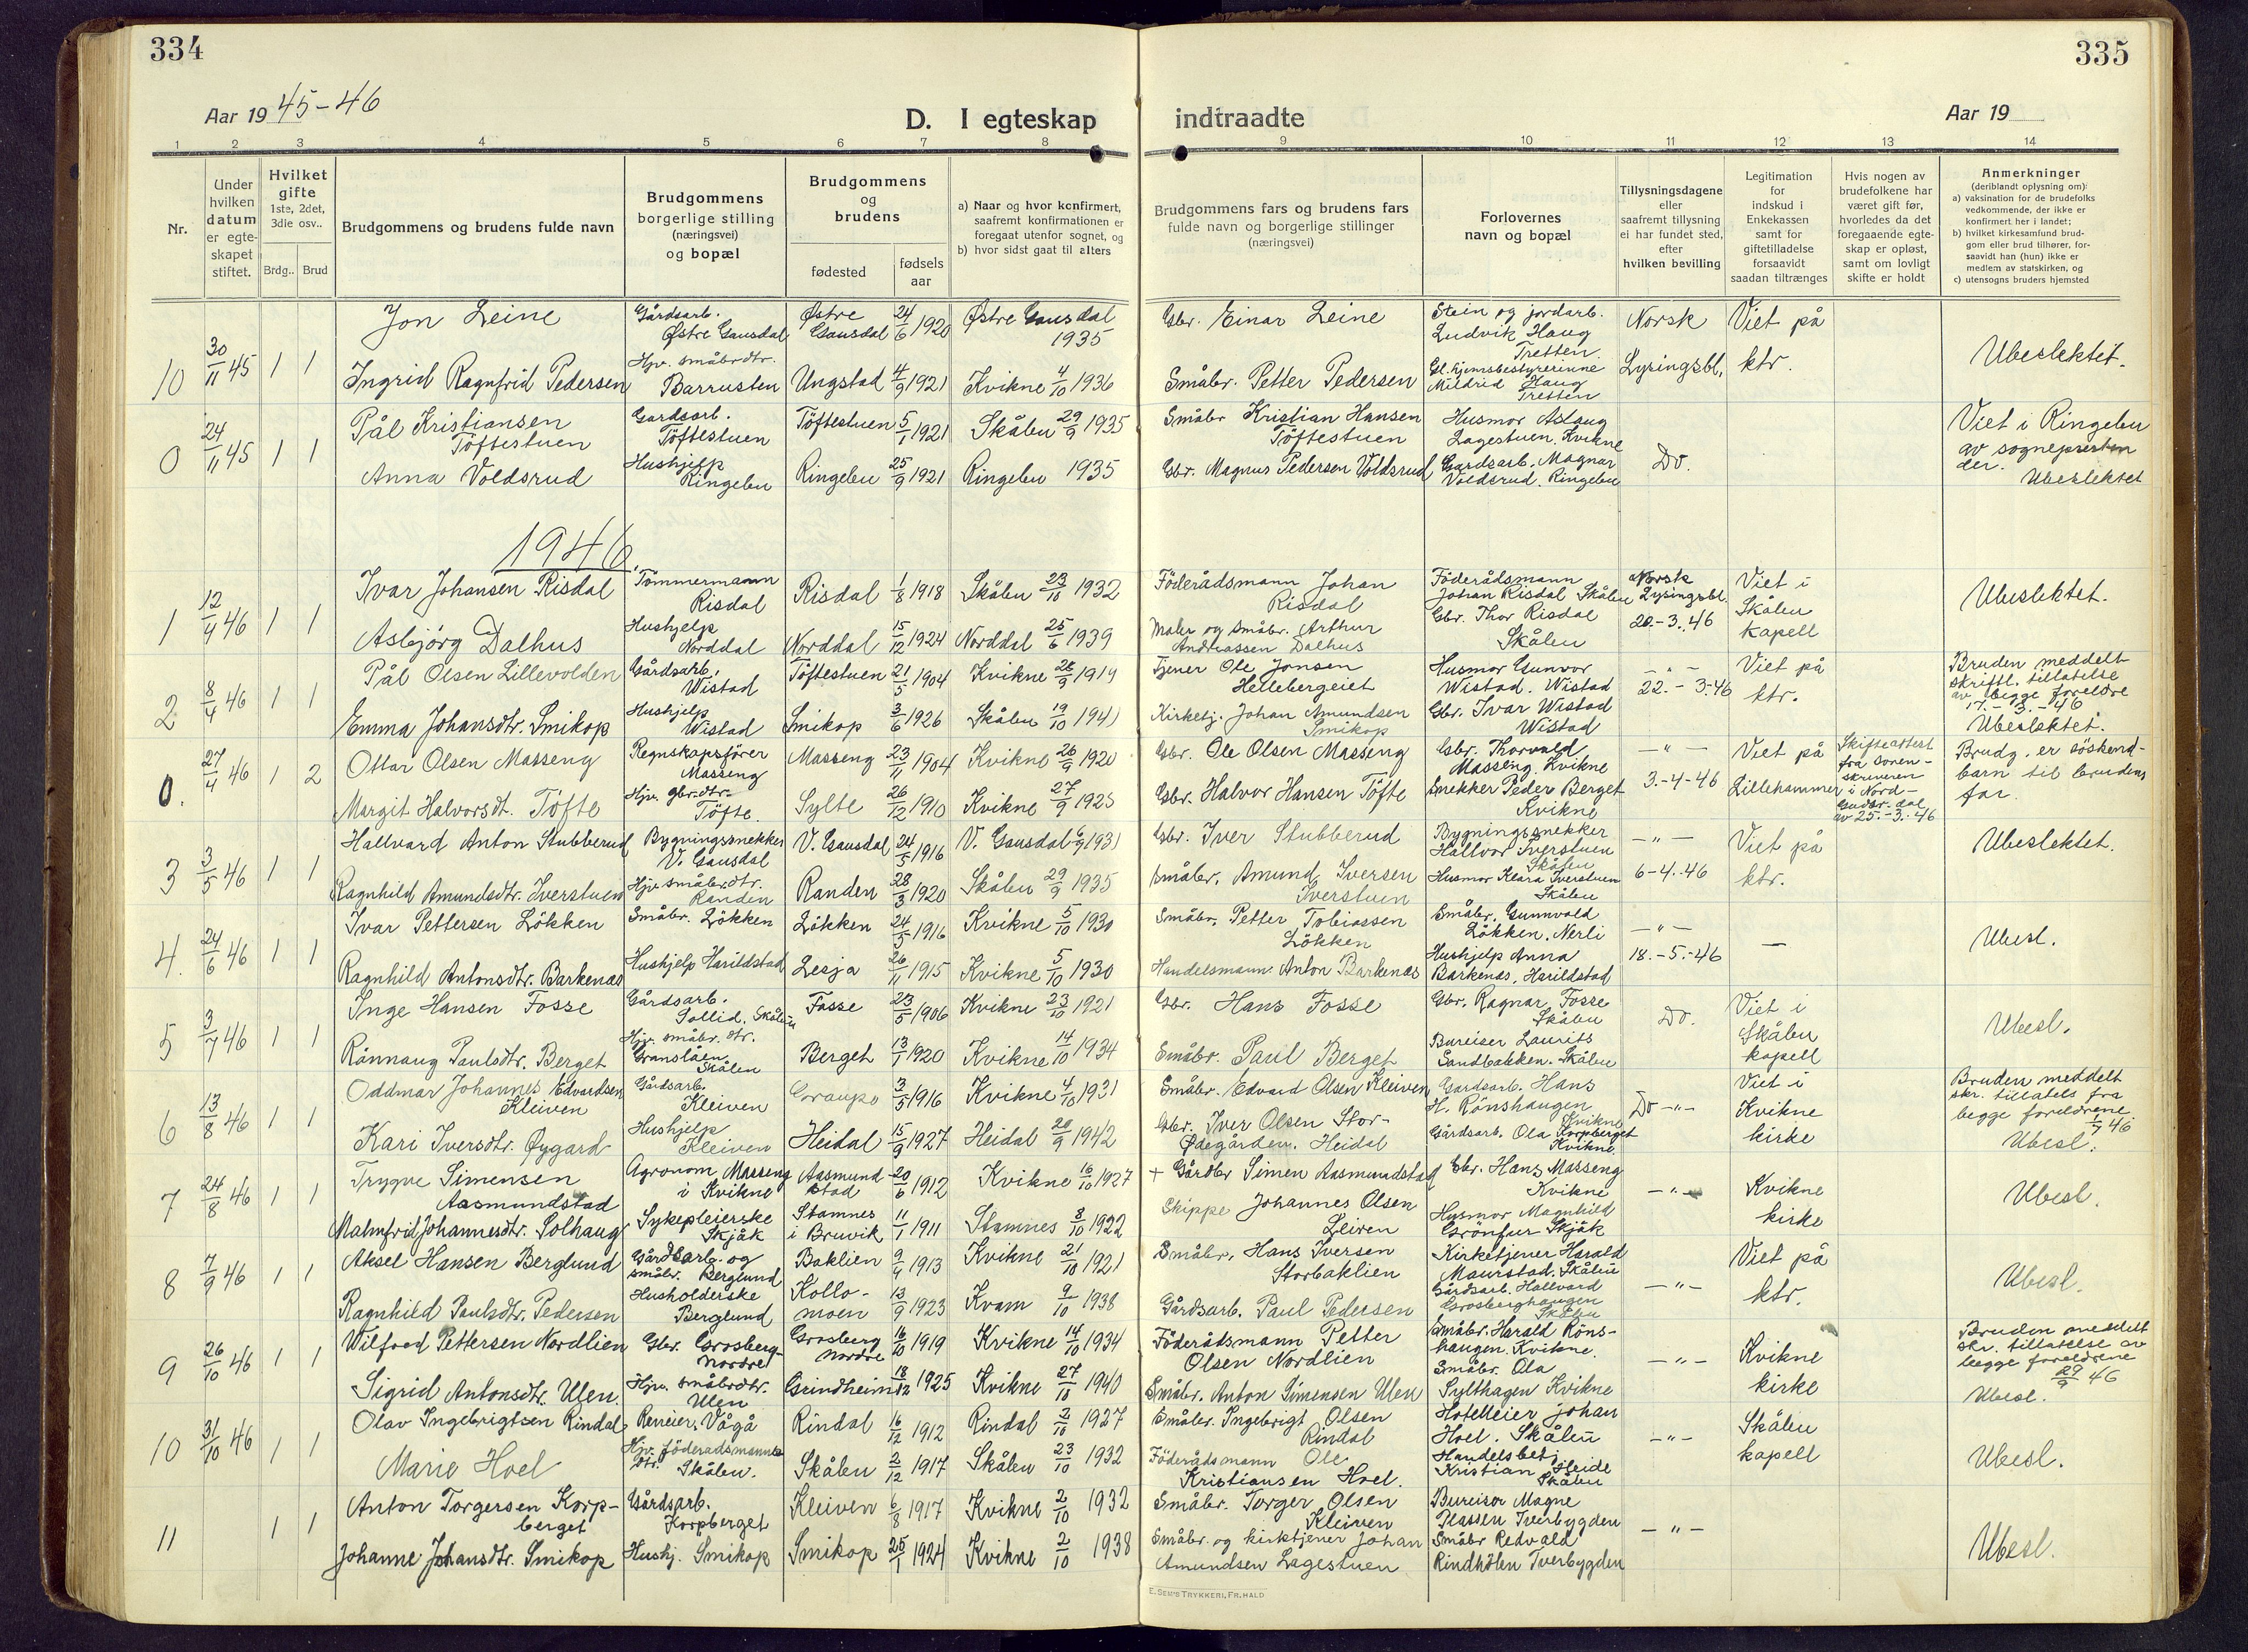 334
335
Aar 19 45-46
D. I egteskap
indtraadte
Aar 19
1 2 3 4 5 6 7 8 9 10 11 12 13 14
Nr.
Under
hvilken
datum
er egte-
skapet
stiftet.
Hvilket
gifte
1ste, 2det,
3die osv..
Brdg.. Brud
Brudgommens og brudens fulde navn
Brudgommens
borgerlige stilling
(næringsvei)
og bopæl
Brudgommens
og
brudens
fødested
fødsels
aar
a) Naar og hvor konfirmert,
saafremt konfirmationen er
foregaat utenfor sognet, og
b) hvor sidst gaat til alters
Brudgommens fars og brudens fars
fulde navn og borgerlige stillinger
(næringsvei)
Forlovernes
navn og bopæl
Tillysningsdagene
eller
saafremt tillysning
ei har fundet sted,
efter
hvilken bevilling
Legitimation
for
indskud i
Enkekassen
samt for
giftetilladelse
forsaavidt
saadan tiltrænges
Hvis nogen av
brudefolkene har
været gift før,
hvorledes da det
foregaaende egte-
skap er opløst,
samt om lovligt
skifte er holdt
Anmerkninger
(deriblandt oplysning om):
a) vaksination for de brudefolks
vedkommende, der ikke er
konfirmert her i landet;
b) hvilket kirkesamfund brud-
gom eller brud tilhører, for-
saavidt han (hun) ikke er
medlem av statskirken, og
c) utensogns bruders hjemsted
10 30/11 45 1 1
Jon Leine
Gårdsarb.
Østre Gausdal
Østre
Gausdal 24/6 1920
Østre Gausdal
1935
Gbr. Einar Leine
Stein og jordarb.
Ludvik Haug
Tretten.
Norsk
Viet på
Ingrid Ragnfrid Pedersen
Hjv. småbrdtr.
Barrusten
Ungstad 4/9 1921
Kvikne 4/10 1936
Småbr. Petter Pedersen
Gl.hjemsbestyrerinne
Mildrid Haug
Tretten
Lysingsbl,
ktr.
Ubeslektet.
0 24/11 45 1 1
Pål Kristiansen
Töftestuen
Gardsarb.
Töftestuen
Töftestuen 5/1 1921
Skåbu 29/9 1935
Småbr Kristian Hansen
Töftestuen
Husmor Aslaug
Lagestuen, Kvikne
Anna Voldsrud
Hushjelp
Ringebu
Ringebu 25/9 1921
Ringebu 1935
Gbr. Magnus Pedersen Voldsrud
Gardsarb. Magnar
Voldsrud. Ringebu
Do.
Viet i Ringebu
av sognepresten
der.
Ubeslektet
1946.
1 12/4 46 1 1
Ivar Johansen Risdal
Tömmermann
Risdal
Risdal 1/8 1918
Skåbu 23/10 1932
Föderådsmann Johan
Risdal
Föderådsmann
Johan Risdal Skåbu
Norsk
Lysingsbl.
Viet i
Asbjörg Dalhus
Hushjelp
Norddal
Norddal 15/12 1924
Norddal 25/6 1939
Maler og småbr. Arthur
Andreassen Dalhus
Gbr. Thor Risdal
Skåbu
20.-3.,46
Skåbu
kapell
Ubeslektet.
2 8/4 46 1 1
Pål Olsen Lillevolden
Gårdsarb,
Wistad
Töftestuen 21/5 1904
Kvikne 28/9 1919
Tjener Ole Jonsen
Hellebergeiet
Husmor Gunvor
Wistad. Wistad
- " -
22.-3-46
Viet på
ktr.
Emma Johansdtr. Smikop
Hushjelp
Wistad
Smikop 3/6 1926
Skåbu 19/10 1941
Kirketj. Johan Amundsen
Smikop
Gbr. Ivar Wistad
Wistad
Bruden meddelt
skriftl. tillatelse
av begge foreldre
17.-3.-46
Ubeslektet.
0. 27/4 46 1 2
Ottar Olsen Masseng
Regnskapsförer
Masseng
Masseng 23/11 1904
Kvikne 26/9 1920
Gbr. Ole Olsen Masseng
Gbr. Thorvald
Masseng. Kvikne
- " -
Viet på
Margit Halvorsdt. Töfte
Hjv. gbr.dtr.
Töfte.
Sylte 26/12 1910
Kvikne 27/9 1925
Gbr. Halvor Hansen Töfte
Snekker Peder Berget
Kvikne
3.-4-46
Lillehammer
Skifteattest
fra soren-
skriveren
i Nord-
Gudbr. dal
av 25.-3.-46
Brudg. er söskend-
barn til brudens
far.
3 3/5 46 1 1
Hallvard Anton Stubberud
Bygningssnekker
V. Gausdal
V. Gausdal 24/5 1916
V. Gausdal 6/9 1931
Gbr. Iver Stubberud
Bygningssnekker
Hallvor Iverstuen
Skåbu
- " -
Viet på
Ragnhild Amundsdtr. Iverstuen
Hjv. småbrdtr.
Randen
Randen 28/3 1920
Skåbu 29/9 1935
Småbr. Amund Iversen
Iverstuen
Husmor Klara Iverstuen
Skåbu
6-4.-46
ktr.
Ubeslektet.
4. 24/6 46 1 1
Ivar Pettersen Lökken
Småbr. Lökken
Lökken 24/5 1916
Kvikne 5/10 1930
Småbr. Petter Tobiassen
Lökken
Småbr. Gunnvald
Lökken. Nerli
- " -
Ragnhild Antonsdtr. Barkenæs
Hushjelp Harildstad
Lesja 26/11 1915
Kvikne 5/10 1930
Handelsmann. Anton Barkenæs
Hushjelp Anna
Barkenæs, Harildstad
18.-5.-46
—
Ubesl.
5 3/7 46 1 1
Inge Hansen Fosse
Gårdsarb.
Sollid. Skåbu
Fosse 23/5 1906
Kvikne 23/10 1921
Gbr. Hans Fosse
Gbr. Ragnar Fosse
Skåbu
Do.
Viet i
Rånnaug Paulsdtr. Berget
Hjv. småbr. dtr.
Granslåen
Skåbu
Berget 13/1 1920
Kvikne 14/10 1934
Småbr. Paul Berget
Bureiser Laurits
Sandbakken. Skåbu
Skåbu
kapell
Ubesl.
6 13/8 46 1 1
Oddmar Johannes Edvardsen
Kleiven
Gårdsarb.
Kleiven
Graupe 3/5 1916
Kvikne 4/10 1931
Småbr. Edvard Olsen Kleiven
Gardsarb. Hans
H. Rönshaugen
Kvikne
Do -"-
Viet i
Kari Iversdtr. Øygard
Hushjelp
Kleiven
Heidal 15/9 1927
Heidal 20/9 1942
Gbr. Iver Olsen Stor-
Ødegården. Heidal
Gårdsarb. Ola Korpberget
Kvikne.
Kvikne
kirke
Bruden meddelt
skr. tillatels fra
begge foreldrene
1/7 46
Ubesl.
7 24/8 46 1 1
Trygve Simensen
Aasmundstad
Agronom Masseng
i Kvikne
Aasmund-
stad 20/6 1912
Kvikne 16/10 1927
+ Gårdbr Simen Aasmundstad
Gbr. Hans Masseng
Kvikne
- " -
Kvikne
kirke
Malmfrid Johannesdtr. Solhaug
Sykepleierske
Skjåk
Stamnes
i Bruvik 11/1 1911
Stamnes 8/10 1922
Johannes Olsen
Leiren
Husmor Magnhild
Grönfur Skjåk
Ubesl.
8 7/9 46 1 1
Aksel Hansen Berglund
Gårdsarb. og
småbr. Berglund
Baklien 9/4 1913
Kvikne 21/10 1921
Småbr. Hans Iversen
Storbaklien
Kirketjener Harald
Maurstad. Skåbu
- " -
Viet på
ktr.
Ragnhild Paulsdtr. Pedersen
Husholderske
Berglund
Kollo-
moen 13/9 1923
Kvam 2/10 1938
Gårdsarb. Paul Pedersen
Gårdsarb. Hallvard
Grosberghaugen
Skåbu
Ubesl.
9 26/10 46 1 1
Wilfred Pettersen Nordlien
Gbr. Grosberg
nordre
Grosberg
nordre 16/10 1919
Kvikne 14/10 1934
Föderådsmann Petter
Olsen Nordlien
Småbr. Harald Röns-
haugen. Kvikne.
- " -
Kvikne
kirke
Sigrid Antonsdtr. Ulen.
Hjv. småbrdtr.
Ulen
Grindheim 18/12 1925
Kvikne 27/10 1940
Småbr. Anton Simensen Ulen
Småbr. Ola
Sylthagen Kvikne
Bruden meddelt
skr. tillatelse av
begge foreldrene
29/9 46
Ubesl.
10 31/10 46 1 1
Olav Ingebrigtsen Rindal
Reneier, Vågå
Rindal 16/12 1912
Rindal 2/10 1927
Småbr. Ingebrigt Olsen
Rindal
Hotelleier Johan
Hoel. Skåbu
- " -
Skåbu
kapell
Marie Hoel
Hjv. föderadsmanns
dtr. Skåbu.
Skåbu 2/12 1917
Skåbu 23/10 1932
Föderådsmann Ole
Kristiansen Hoel.
Handelsbetj.
Kristian Heide
Skåbu
Ubesl.
11 1 1
Anton Torgersen Korp-
berget
Gårdsarb.
Korpberget
Kleiven 6/8 1917
Kvikne 2/10 1932
Småbr. Torger Olsen
Kleiven
Bureisor Magne
Plassen Tverbygden
- " -
Johanne Johansdtr. Smikop
Hushj. Smikop
Smikop 25/1 1924
Kvikne 2/10 1938
Småbr. og kirktjener Johan
Amundsen Lagestuen
Småbr Redvald
Rindhölen Tverbygden
Ubesl.
E. SEM'S TRYKKERI, FR.HALD